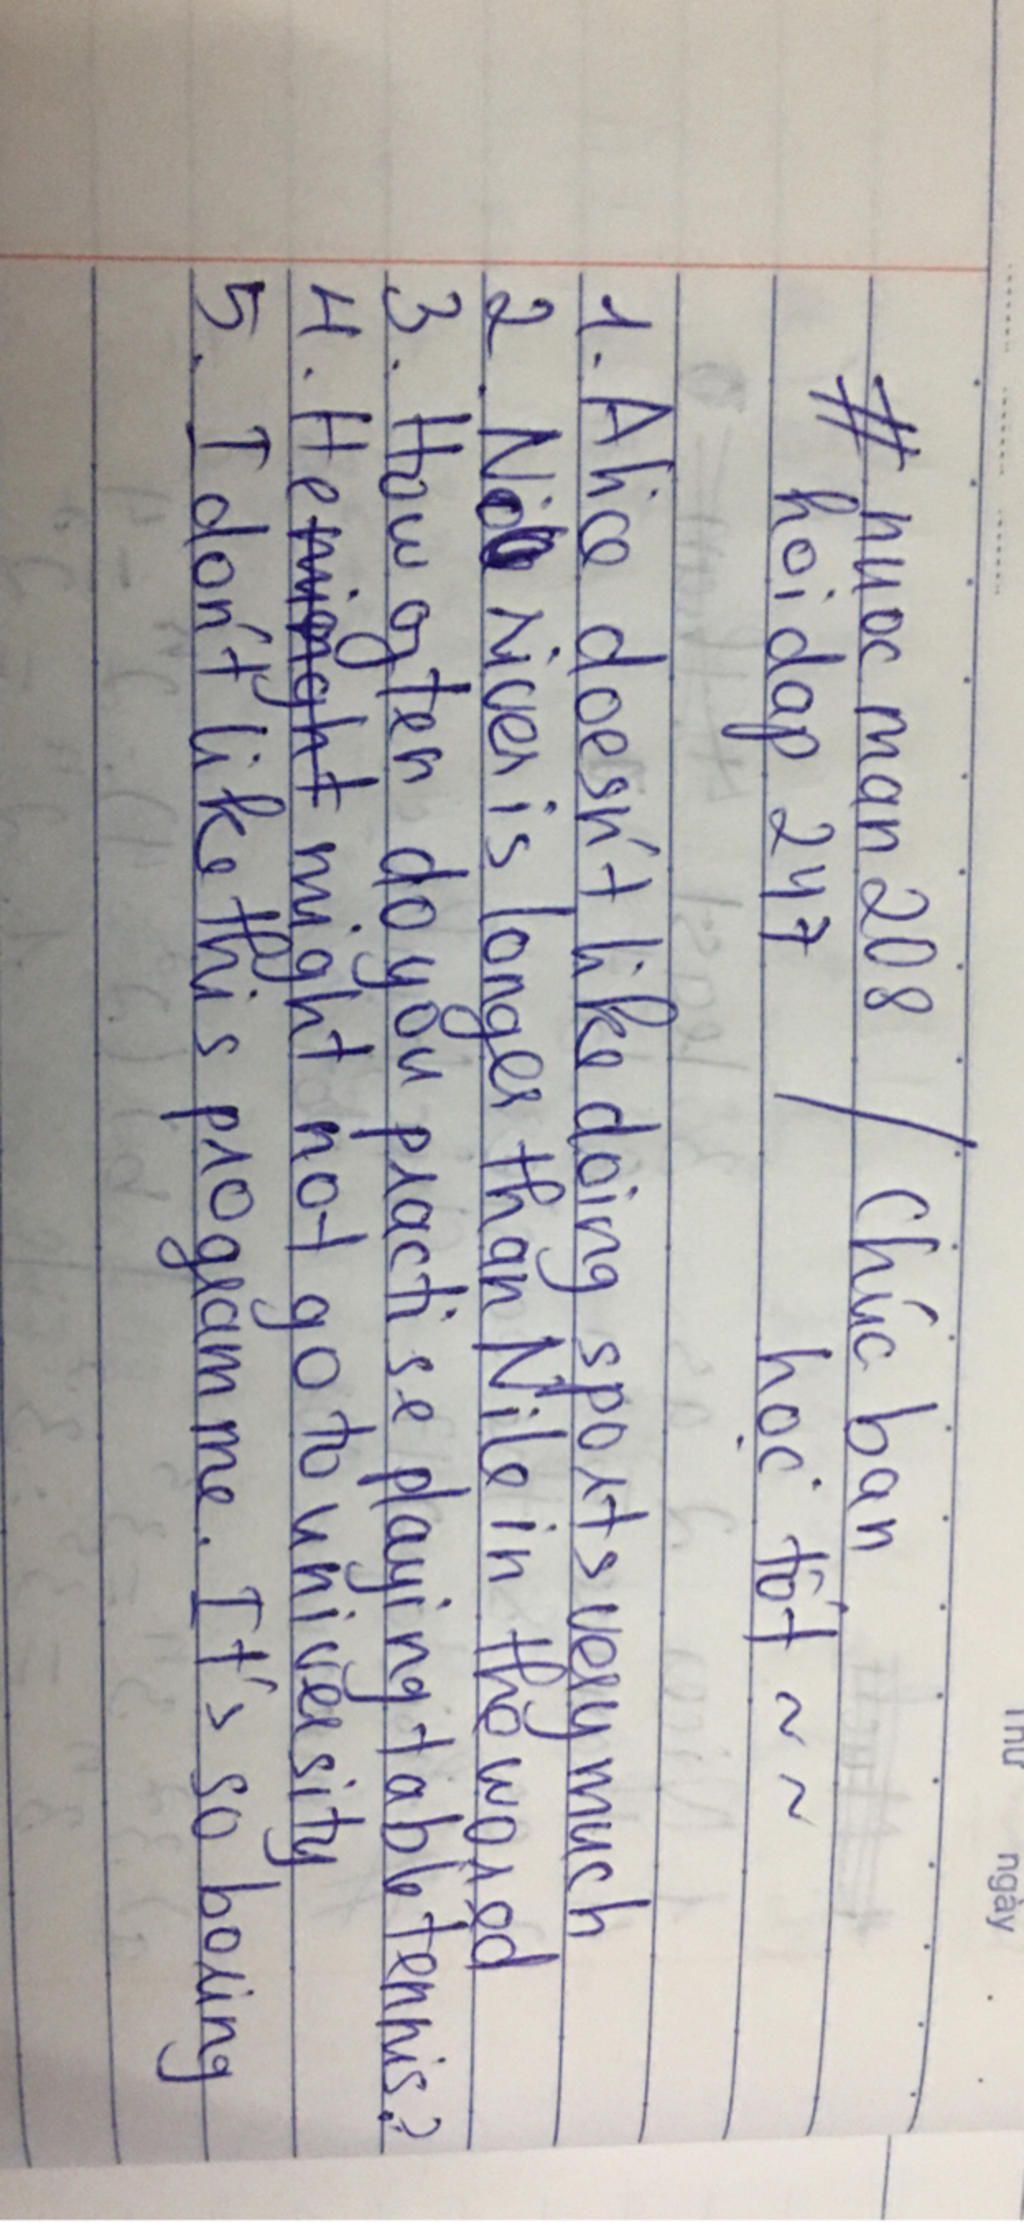 Thứ
ngày
# nuocman208 / Chúc bạn
hoidap 247 học tốt ~ ~
1. Alice doesn't like doing sports very much
2. No river is longer than Nile in the world
3. How often do you practise playing table tennis?
4. He might might not go to university
5. I don't like this programme. It's so boring